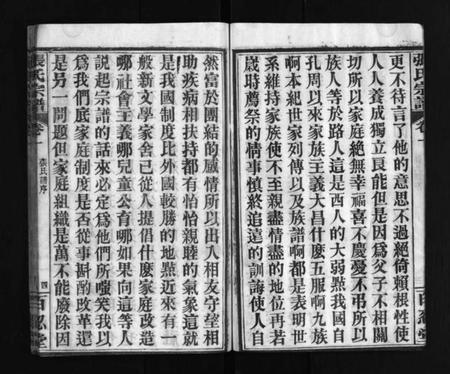 張氏宗譜
卷一
更不待言了他的意思不過絕倚賴根性使
人人養成獨立良能但是因爲父子不相關
切所以家庭絕無幸福喜不慶憂不弔所以
族人等於路人這是西人的大弱點我國自
孔周以來家族主義大昌什麽五服啊九族
啊本紀世家列傳以及族譜啊都是表明世
系維持家族使不至親盡情盡的地位再若
歲時薦祭的情事愼終追遠的訓誨使人自
百忍堂
然富於團結的感情所以出入相友守望相
助疾病相扶持都有怡怡親睦的氣象這就
是我國制度比外國較勝的地點近來有一
般新文學家舍已從人提倡什麽家庭改造
哪社會主義哪兒童公育哪如果向這等人
說起宗譜的話來必定爲他們所嗤笑我以
爲我們底家庭制度是否從事斟酌改革還
是另一問題但家庭組織是萬不能廢除因
張氏宗譜
卷一
張氏譜序
四
百忍堂